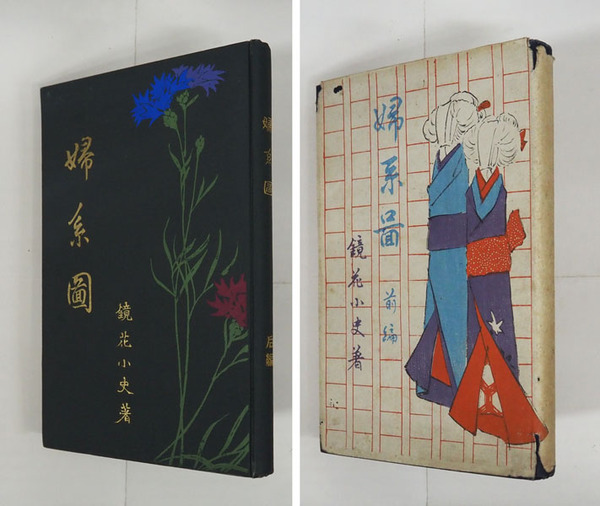 婦系圖
鏡花小史著
婦系圖
后編
婦系啚
前編
鏡花小史著